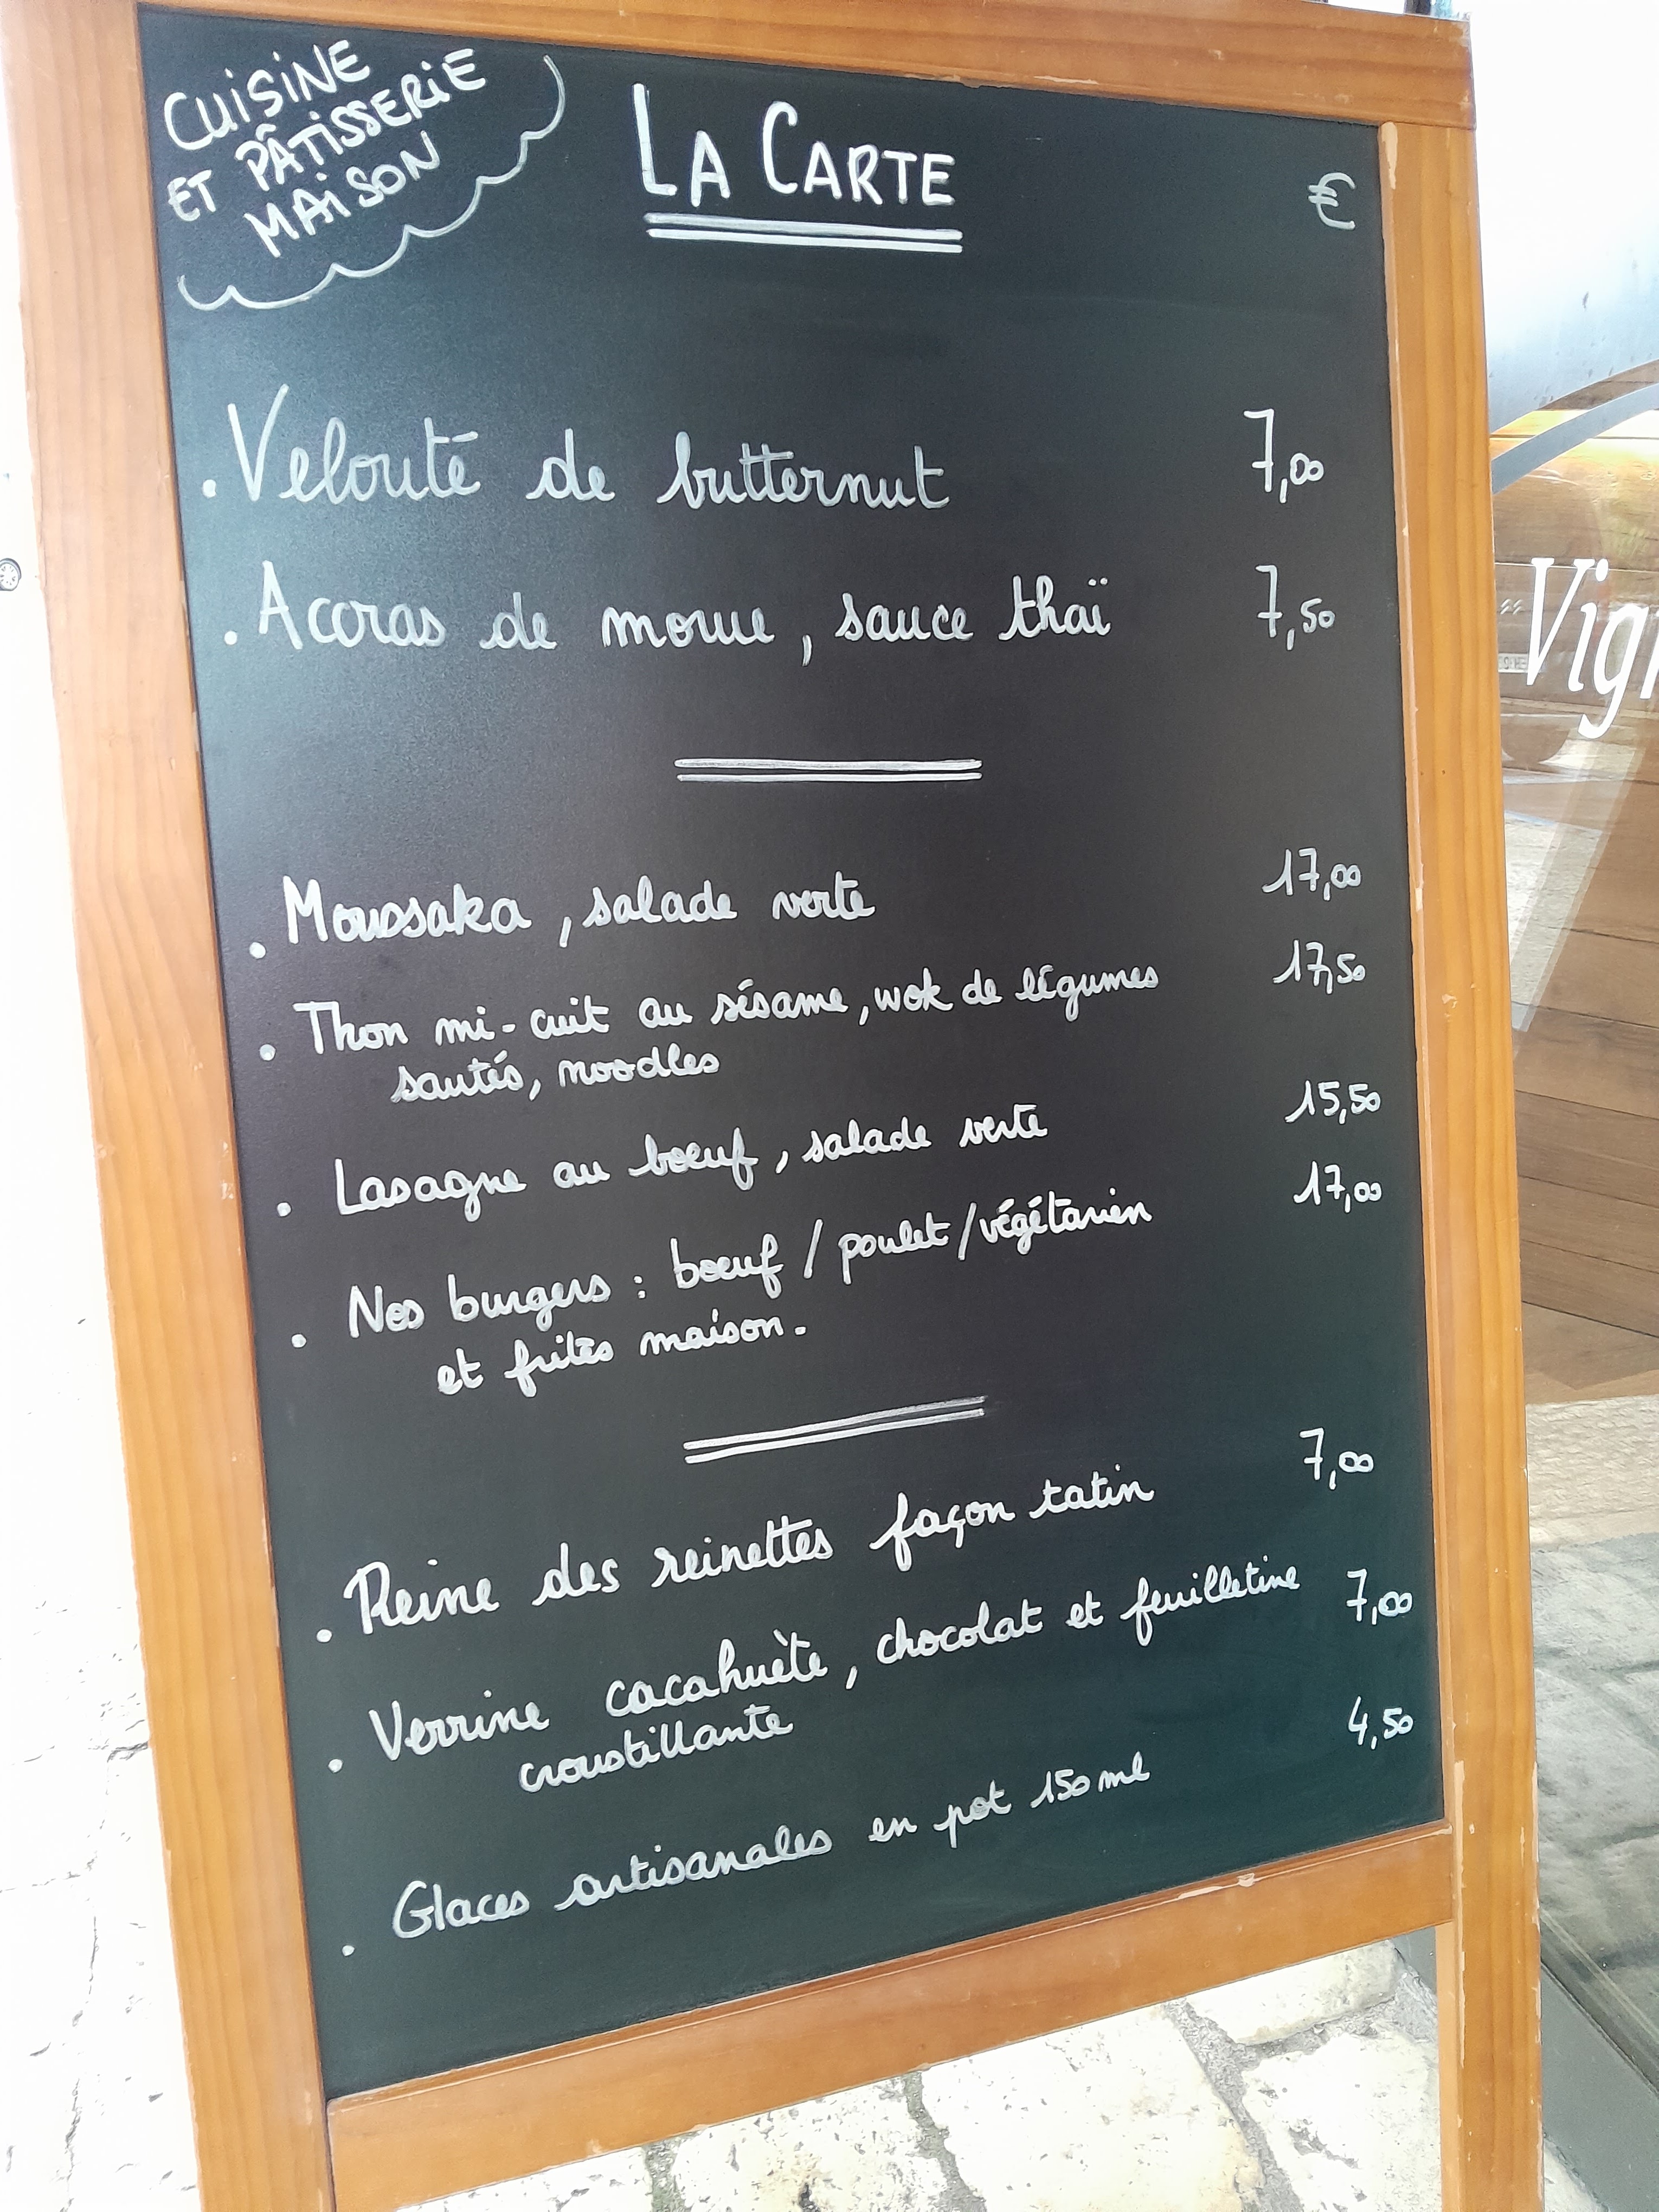 CUISINE
ET PÂTISSERIE
MAISON
LA CARTE €
. Velouté de butternut 7,00
. Accras de morue, sauce thaï 7,50
. Moussaka, salade verte 17,00
. Thon mi-cuit au sésame, wok de légumes 17,50
sautés, noodles
. Lasagne au boeuf, salade verte 15,50
. Nos burgers : boeuf / poulet / végétarien 17,00
et frites maison.
. Reine des reinettes façon tatin 7,00
. Verrine cacahuète, chocolat et feuilletine 7,00
croustillante
. Glaces artisanales en pot 150 ml 4,50
Vig